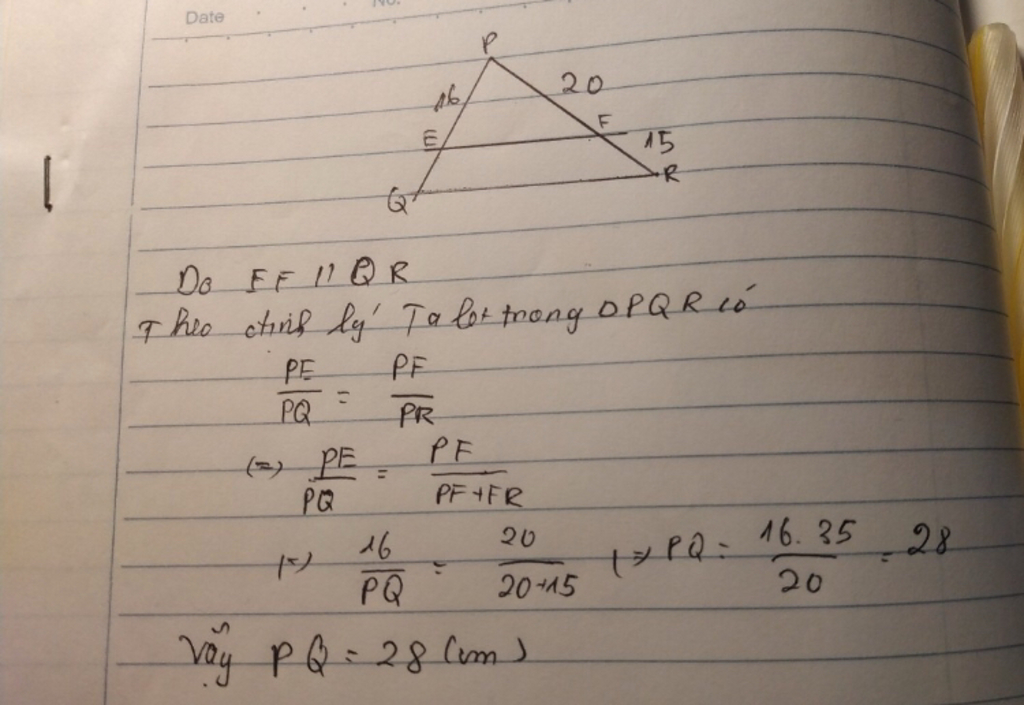 Date No.
P
16 20
E F 15
Q R
Do EF // QR
Theo định lý Ta lot trong ΔPQR có
PE/PQ = PF/PR
(=) PE/PQ = PF/PF+FR
(=) 16/PQ = 20/20+15 (=) PQ = 16.35/20 = 28
Vậy PQ = 28 (cm)